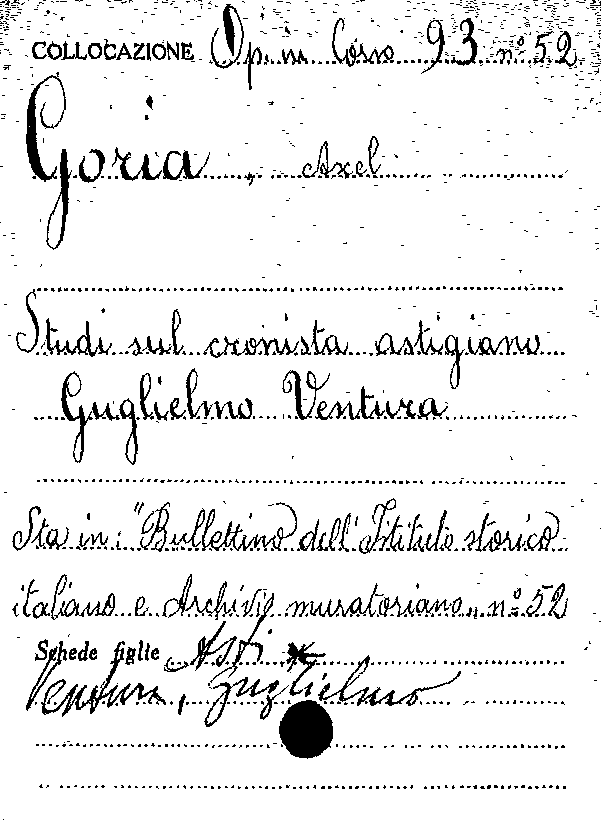 COLLOCAZIONE Op. in Corso 93 n° 52
Goria, Axel
Studi sul cronista astigiano
Guglielmo Ventura
Sta in: "Bullettino dell'Istituto storico
italiano e Archivio muratoriano„ n° 52
Schede figlie Asti
Ventura, Guglielmo